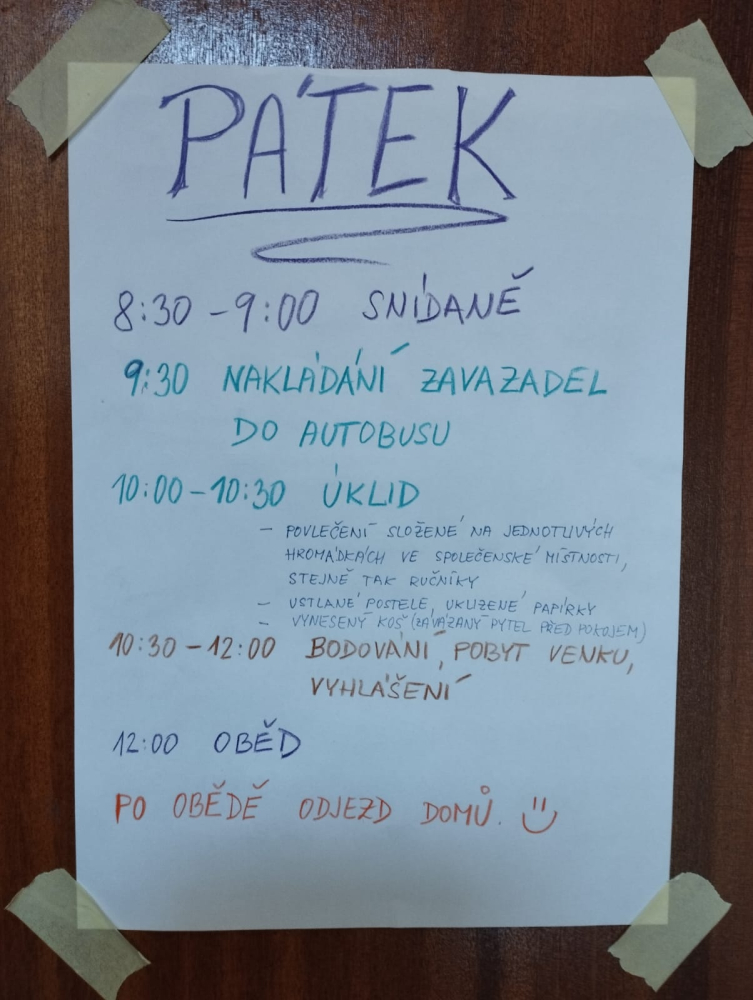 PÁTEK
8:30 - 9:00 SNÍDANĚ
9:30 NAKLÁDÁNÍ ZAVAZADEL
DO AUTOBUSU
10:00 - 10:30 ÚKLID
- POVLEČENÍ SLOŽENÉ NA JEDNOTLIVÝCH
HROMÁDKÁCH VE SPOLEČENSKÉ MÍSTNOSTI,
STEJNĚ TAK RUČNÍKY
- USTLANÉ POSTELE, UKLIZENÉ PAPÍRKY
- VYNESENÝ KOŠ (ZAVÁZANÝ PYTEL PŘED POKOJEM)
10:30 - 12:00 BODOVÁNÍ, POBYT VENKU,
VYHLÁŠENÍ
12:00 OBĚD
PO OBĚDĚ ODJEZD DOMŮ.